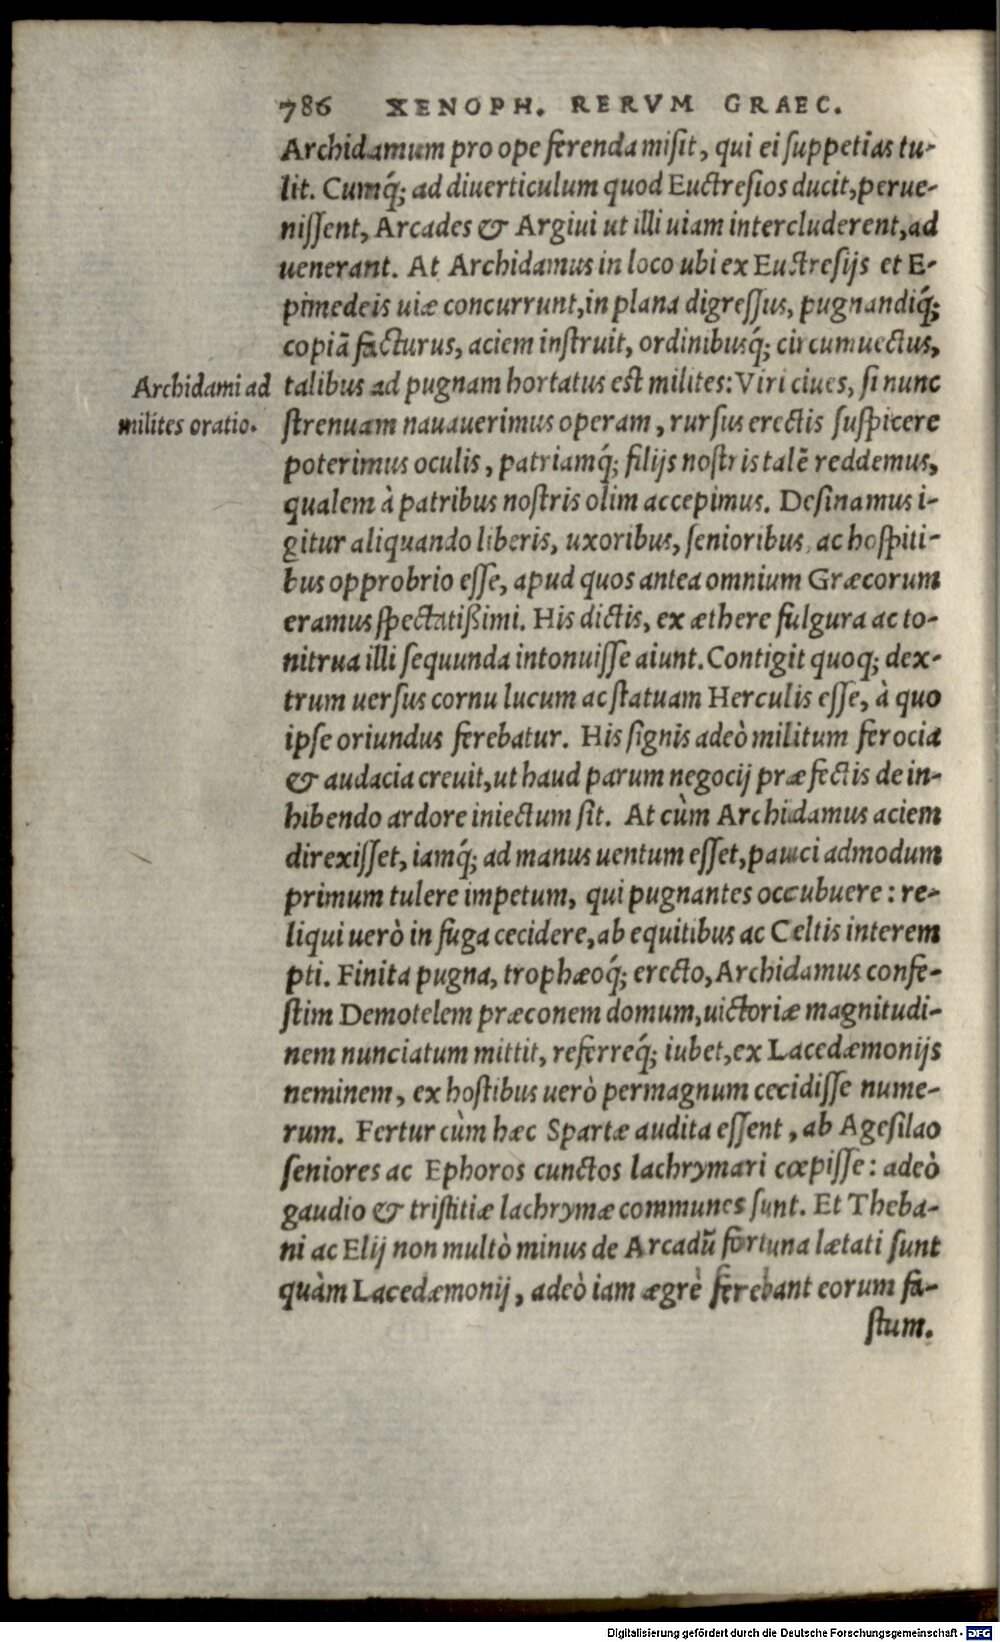 786 XENOPH. RERVM GRAEC.
Archidamum pro ope ferenda misit, qui ei suppetias tu-
lit. Cumq́; ad diuerticulum quod Euctresios ducit, perue-
nissent, Arcades & Argiui ut illi uiam intercluderent, ad
uenerant. At Archidamus in loco ubi ex Euctresijs et E-
pimedeis uiæ concurrunt, in plana digressus, pugnandiq́;
copiã facturus, aciem instruit, ordinibusq́; circumuectus,
Archidami ad
milites oratio.
talibus ad pugnam hortatus est milites: Viri ciues, si nunc
strenuam nauauerimus operam, rursus erectis suspicere
poterimus oculis, patriamq́; filijs nostris talẽ reddemus,
qualem à patribus nostris olim accepimus. Desinamus i-
gitur aliquando liberis, uxoribus, senioribus, ac hospiti-
bus opprobrio esse, apud quos antea omnium Græcorum
eramus spectatißimi. His dictis, ex æthere fulgura ac to-
nitrua illi sequunda intonuisse aiunt. Contigit quoq; dex-
trum uersus cornu lucum ac statuam Herculis esse, à quo
ipse oriundus ferebatur. His signis adeò militum ferocia
& audacia creuit, ut haud parum negocij præfectis de in-
hibendo ardore iniectum sit. At cùm Archidamus aciem
direxisset, iamq́; ad manus uentum esset, pauci admodum
primum tulere impetum, qui pugnantes occubuere: re-
liqui uerò in fuga cecidere, ab equitibus ac Celtis interem
pti. Finita pugna, trophæoq́; erecto, Archidamus confe-
stim Demotelem præconem domum, uictoriæ magnitudi-
nem nunciatum mittit, referreq́; iubet, ex Lacedæmonijs
neminem, ex hostibus uerò permagnum cecidisse nume-
rum. Fertur cùm hæc Spartæ audita essent, ab Agesilao
seniores ac Ephoros cunctos lachrymari cœpisse: adeò
gaudio & tristitiæ lachrymæ communes sunt. Et Theba-
ni ac Elij non multò minus de Arcadũ fortuna lætati sunt
quàm Lacedæmonij, adeò iam ægrè ferebant eorum fa-
stum.
Digitalisierung gefördert durch die Deutsche Forschungsgemeinschaft - DFG